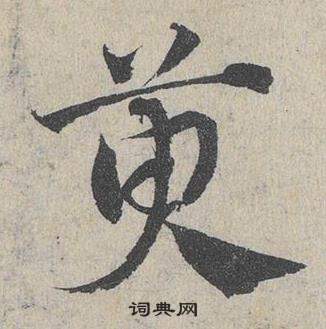 黄
词典网